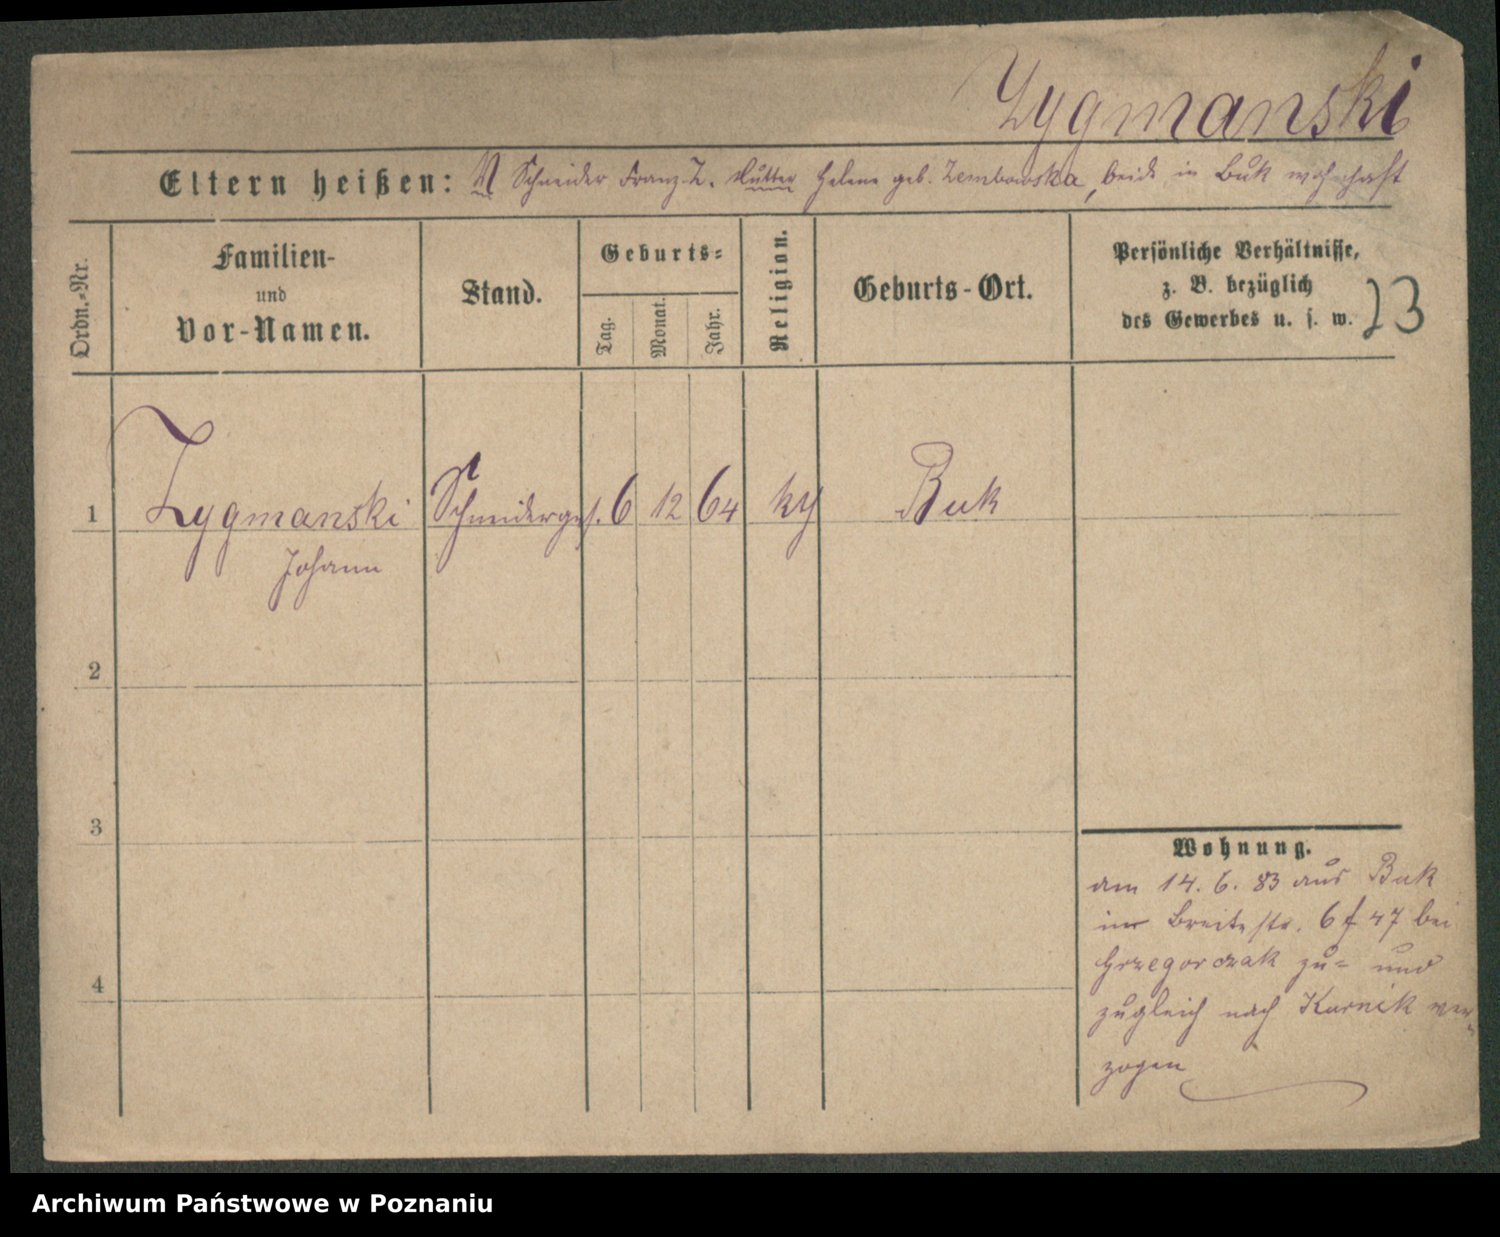 Zygmanski
Eltern heißen: Schneider Franz Z. Mutter Helene geb. Zembowska, beide in Buk wohnhaft
Ordn.-Nr.
Familien-
und
Vor-Namen.
Stand.
Geburts-
Tag.
Monat.
Jahr.
Religion.
Geburts-Ort.
Persönliche Verhältnisse,
z. B. bezüglich
des Gewerbes u. s. w.
23
1 Zygmanski Schneiderges. 6 12 64 Buk
Johann
2
3
4
Wohnung.
am 14. 6. 83 aus Buk
in Breitestr. 6 f 47 bei
Grzegorczak zu- und
zugleich nach Kurnik ver-
zogen
Archiwum Państwowe w Poznaniu